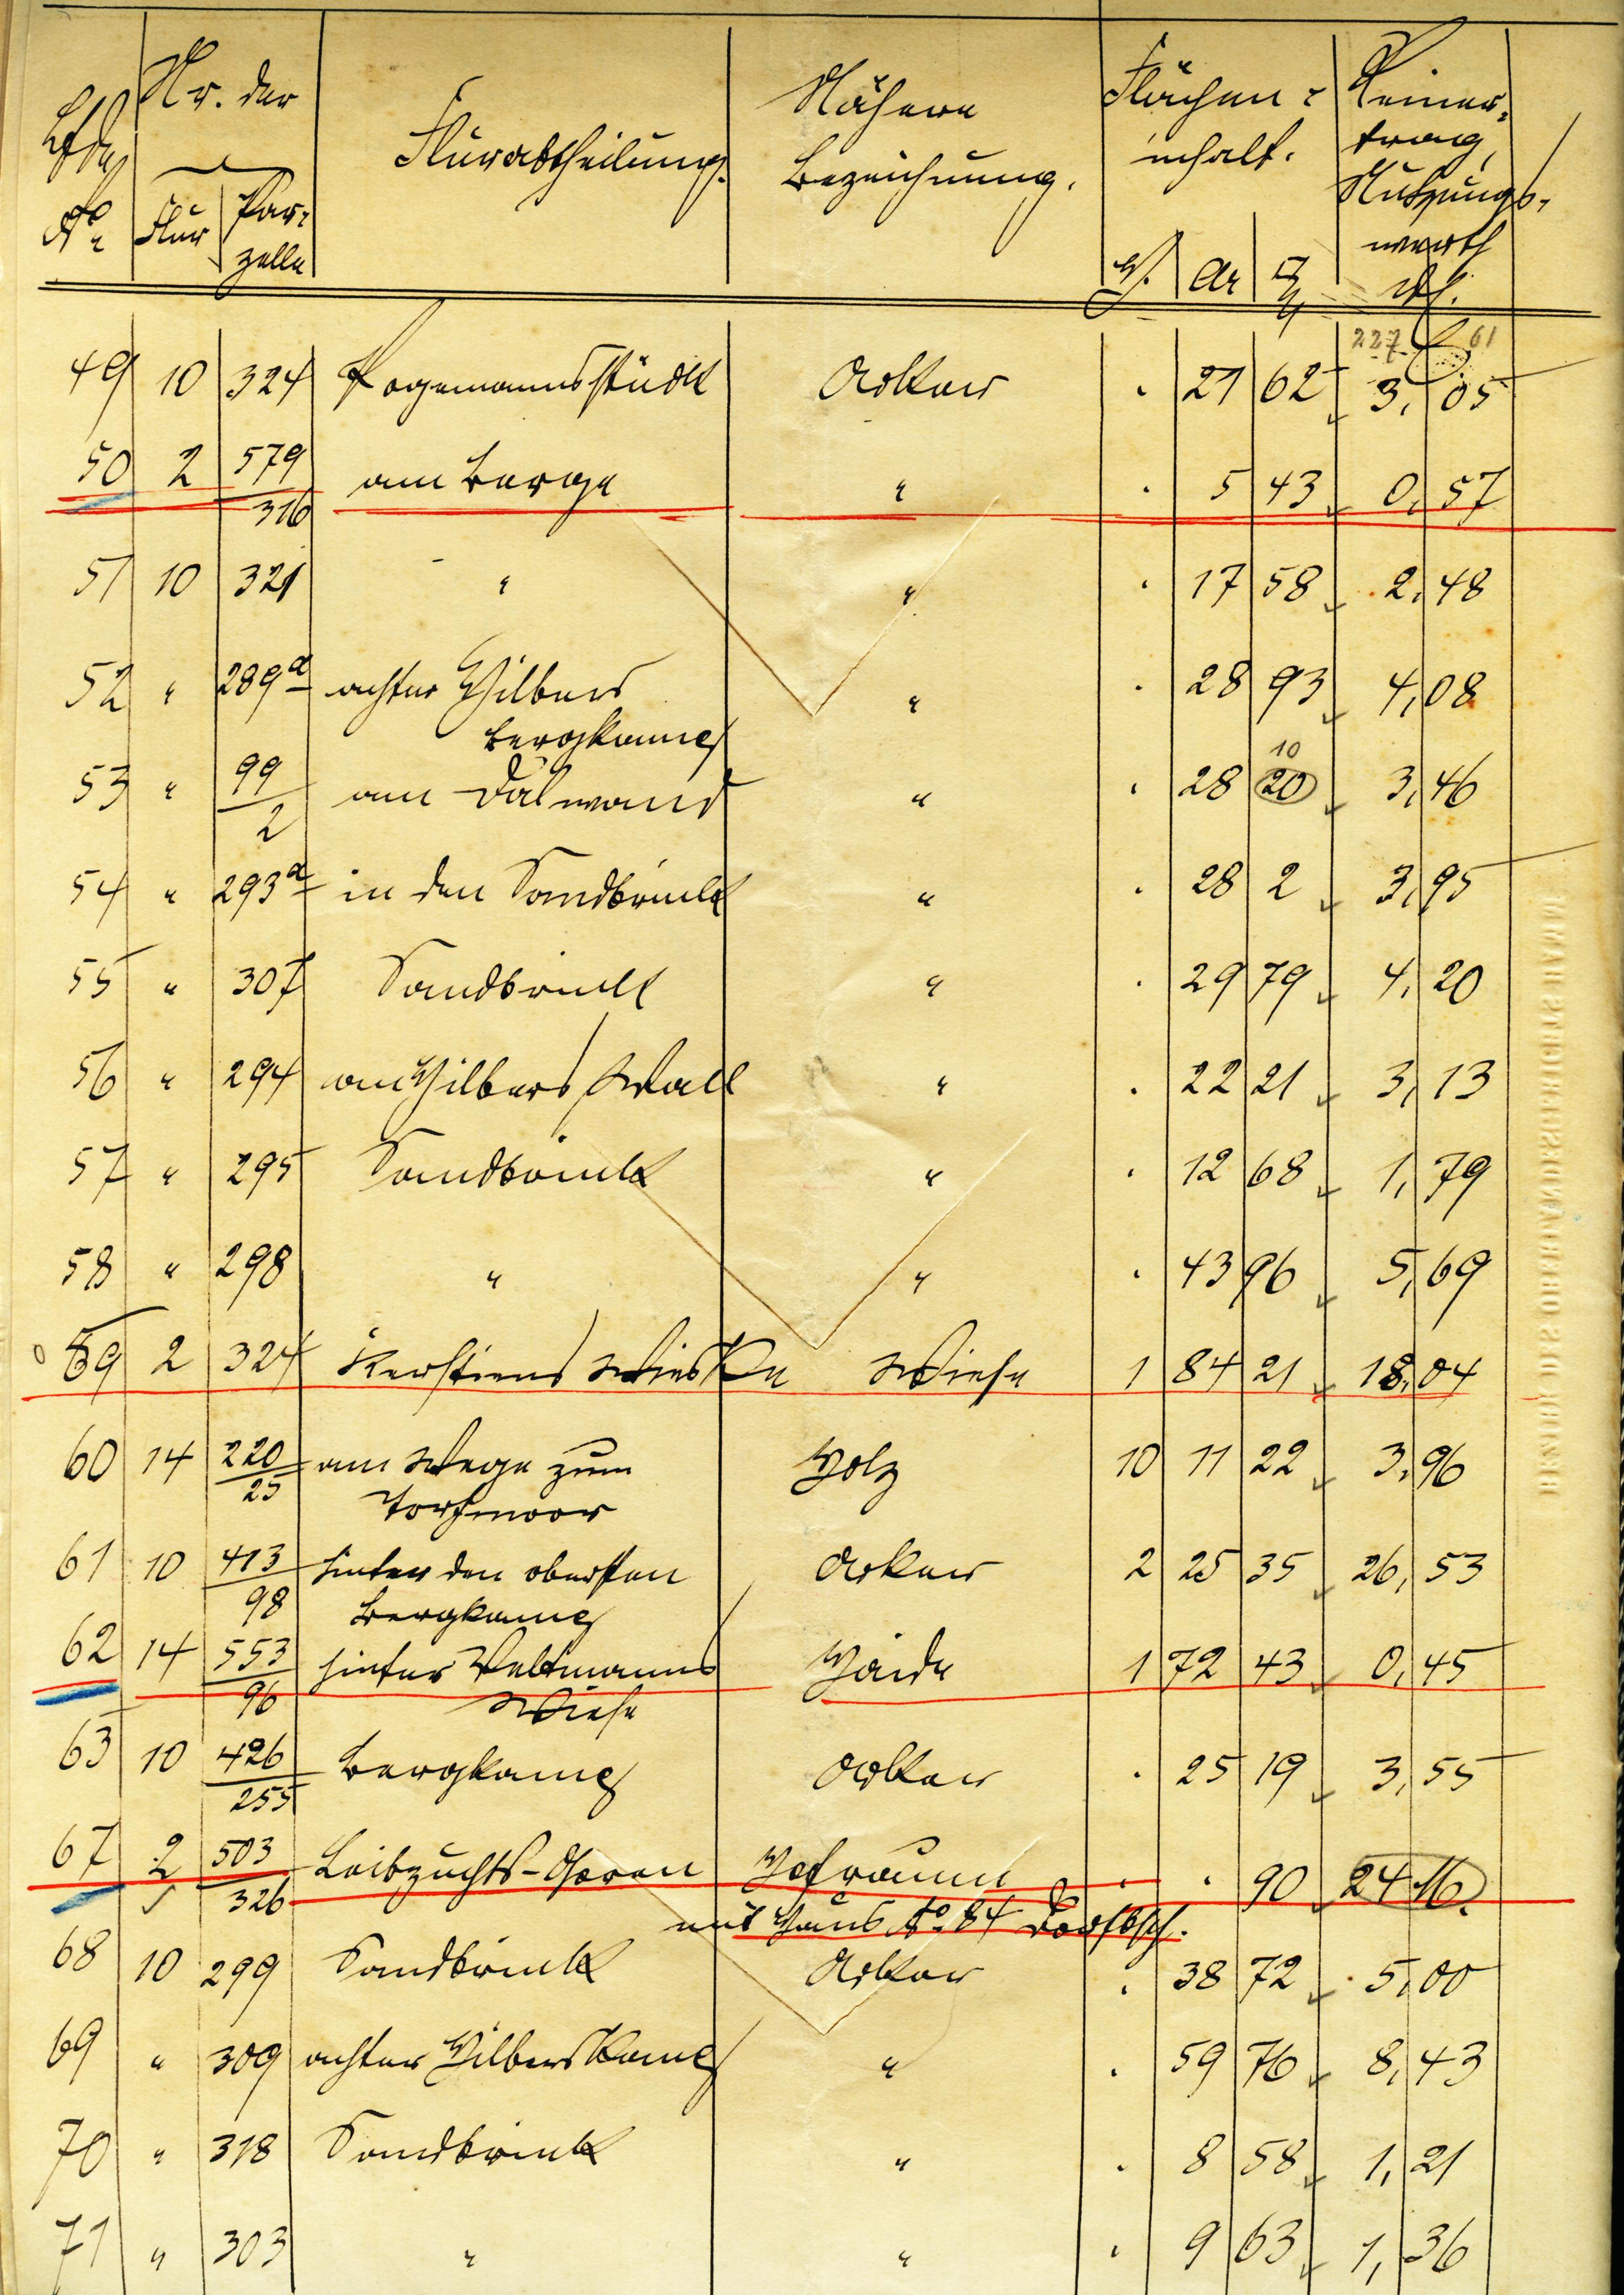 Lfde No. Nr. der Flur Parzelle Flurabtheilung. Nähere Bezeichnung. Flächeninhalt. H. Ar □M Reinertrag, Nutzungswerth M.
227 61
49 10 324 Pogemannsstück Acker . 21 62 3,05
50 2 579/316 am Berge " . 5 43 0,57
51 10 321 " " . 17 58 2,48
52 " 289a achter Hilbers " . 28 93 4,08
Bergkamp 10
53 " 99/2 am Dalwand " . 28 20 3,46
54 " 293a in den Sandbrinck " . 28 2 3,95
55 " 307 Sandbrinck " . 29 79 4,20
56 " 294 am Hilbers Wall " . 22 21 3,13
57 " 295 Sandbrink " . 12 68 1,79
58 " 298 " " . 43 96 5,69
59 2 324 Kerstiens Wieske Wiese 1 84 21 18,04
60 14 220/25 am Wege zum Holz 10 11 22 3,96
Torfmoor
61 10 413/98 hinter den obersten Acker 2 25 35 26,53
Bergkamp
62 14 553/96 hinter Veltmanns Haide 1 72 43 0,45
Wiese
63 10 426/255 Bergkamp Acker . 25 19 3,55
67 2 503/326 Leibzuchts-Goren Hofraum . . 90 24 16.
mit Haus No 84
68 10 299 Sandbrink Acker . 38 72 5,00
69 " 309 achter Hilbers Kamp " . 59 76 8,43
70 " 318 Sandbrink " . 8 58 1,21
71 " 303 " " . 9 63 1,36